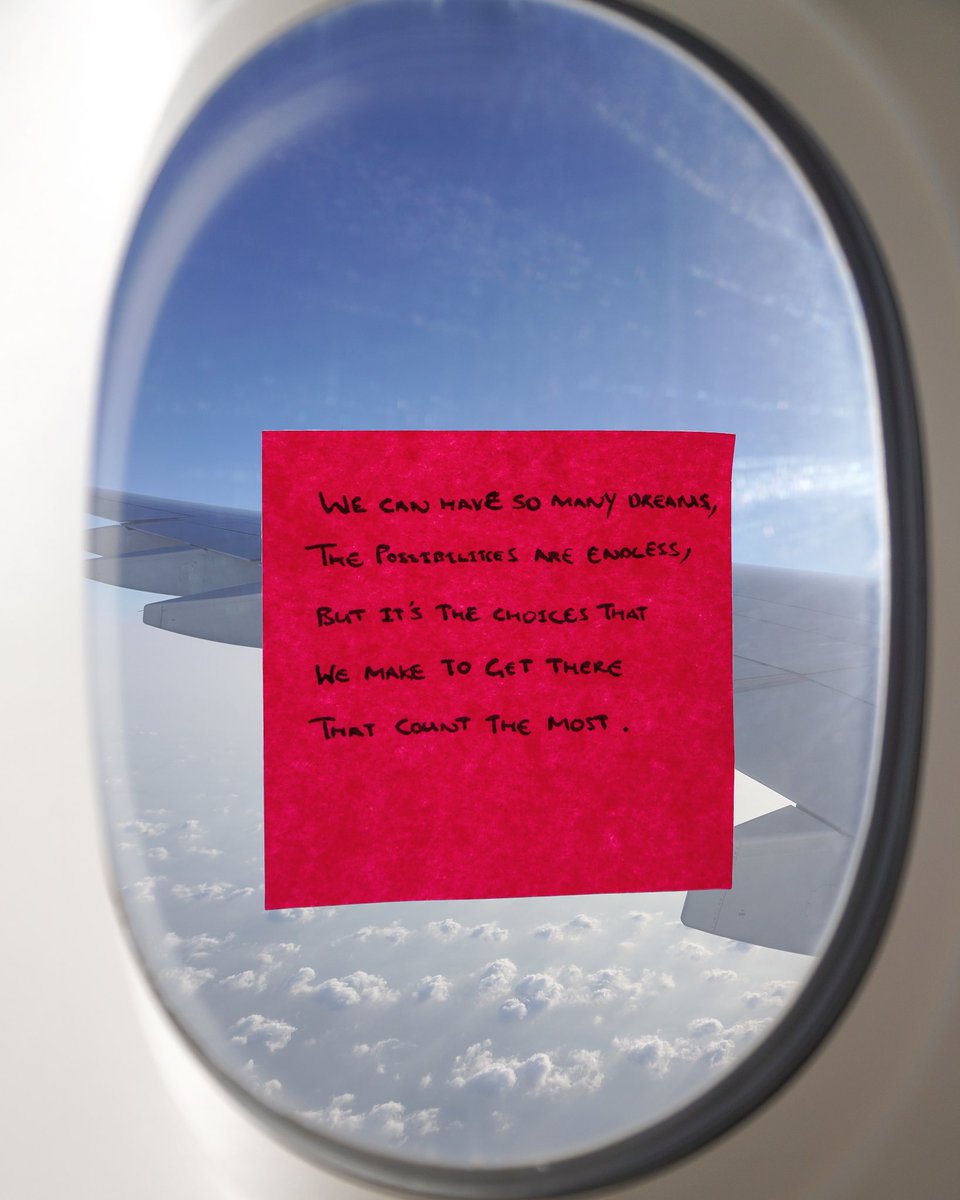 WE CAN HAVE SO MANY DREAMS,
THE POSSIBILITIES ARE ENDLESS,
BUT IT'S THE CHOICES THAT
WE MAKE TO GET THERE
THAT COUNT THE MOST.